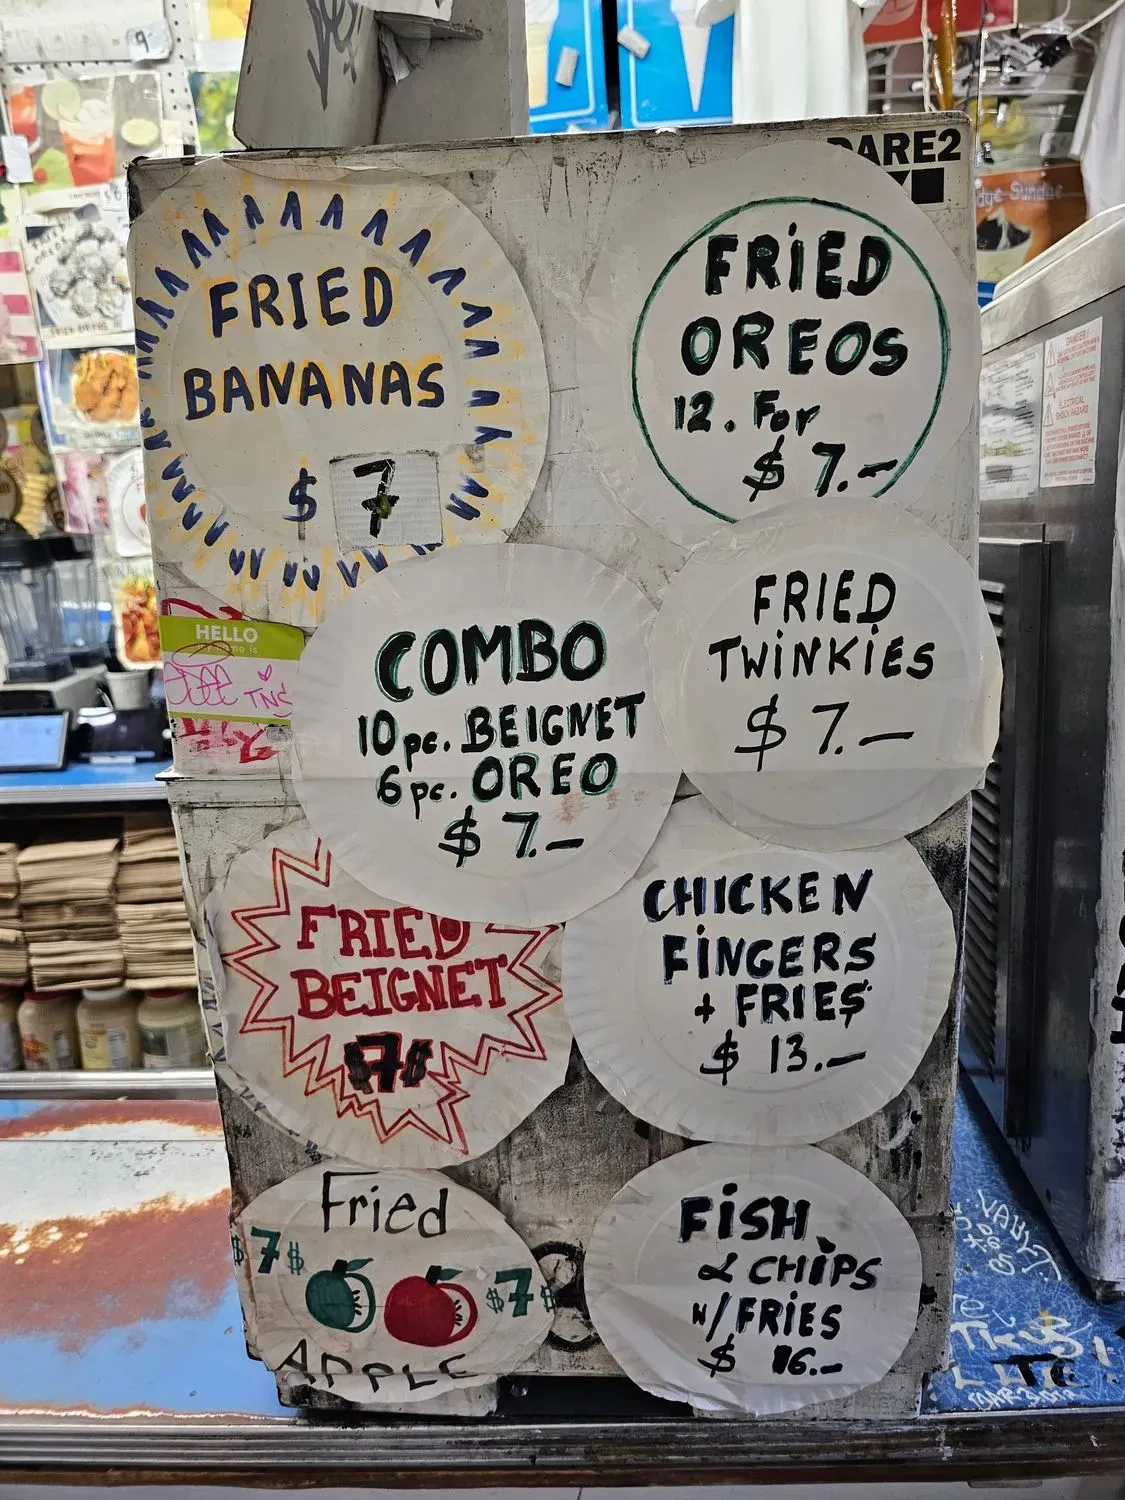 9
DARE2
FRIED
BANANAS
$ 7
FRIED
OREOS
12. For
$ 7.—
HELLO
name is
TNS
COMBO
10 pc. BEIGNET
6 pc. OREO
$ 7.—
FRIED
TWINKIES
$ 7.—
FRIED
BEIGNET
$7$
CHICKEN
FINGERS
+ FRIES
$ 13.—
Fried
$7$
$7$
APPLE
FISH
& CHIPS
w/FRIES
$ 16.—
DANGER!
ELECTRICAL
SHOCK HAZARD
VAULT